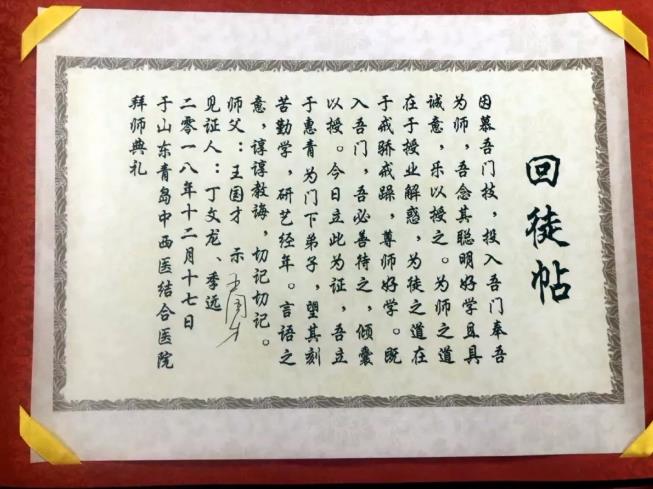 回徒帖
因慕吾门技，投入吾门奉吾
为师，吾念其聪明好学且具
诚意，乐以授之。为师之道
在于授业解惑，为徒之道在
于戒骄戒躁，尊师好学。既
入吾门，吾必善待之，倾囊
以授。今日立此为证，吾立
于惠青为门下弟子，望其刻
苦勤学，研艺经年。言语之
意，谆谆教诲，切记切记。
师父：王国才 示 王国才
见证人：丁文龙、季远
二零一八年十二月十七日
于山东青岛中西医结合医院
拜师典礼